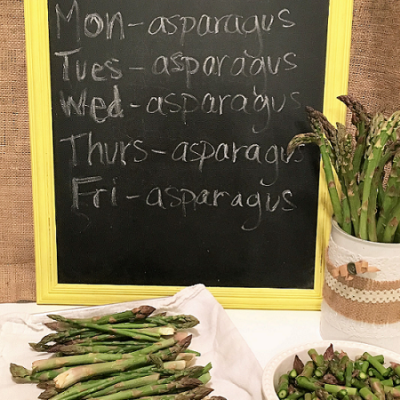 Mon-asparagus
Tues-asparagus
Wed-asparagus
Thurs-asparagus
Fri-asparagus